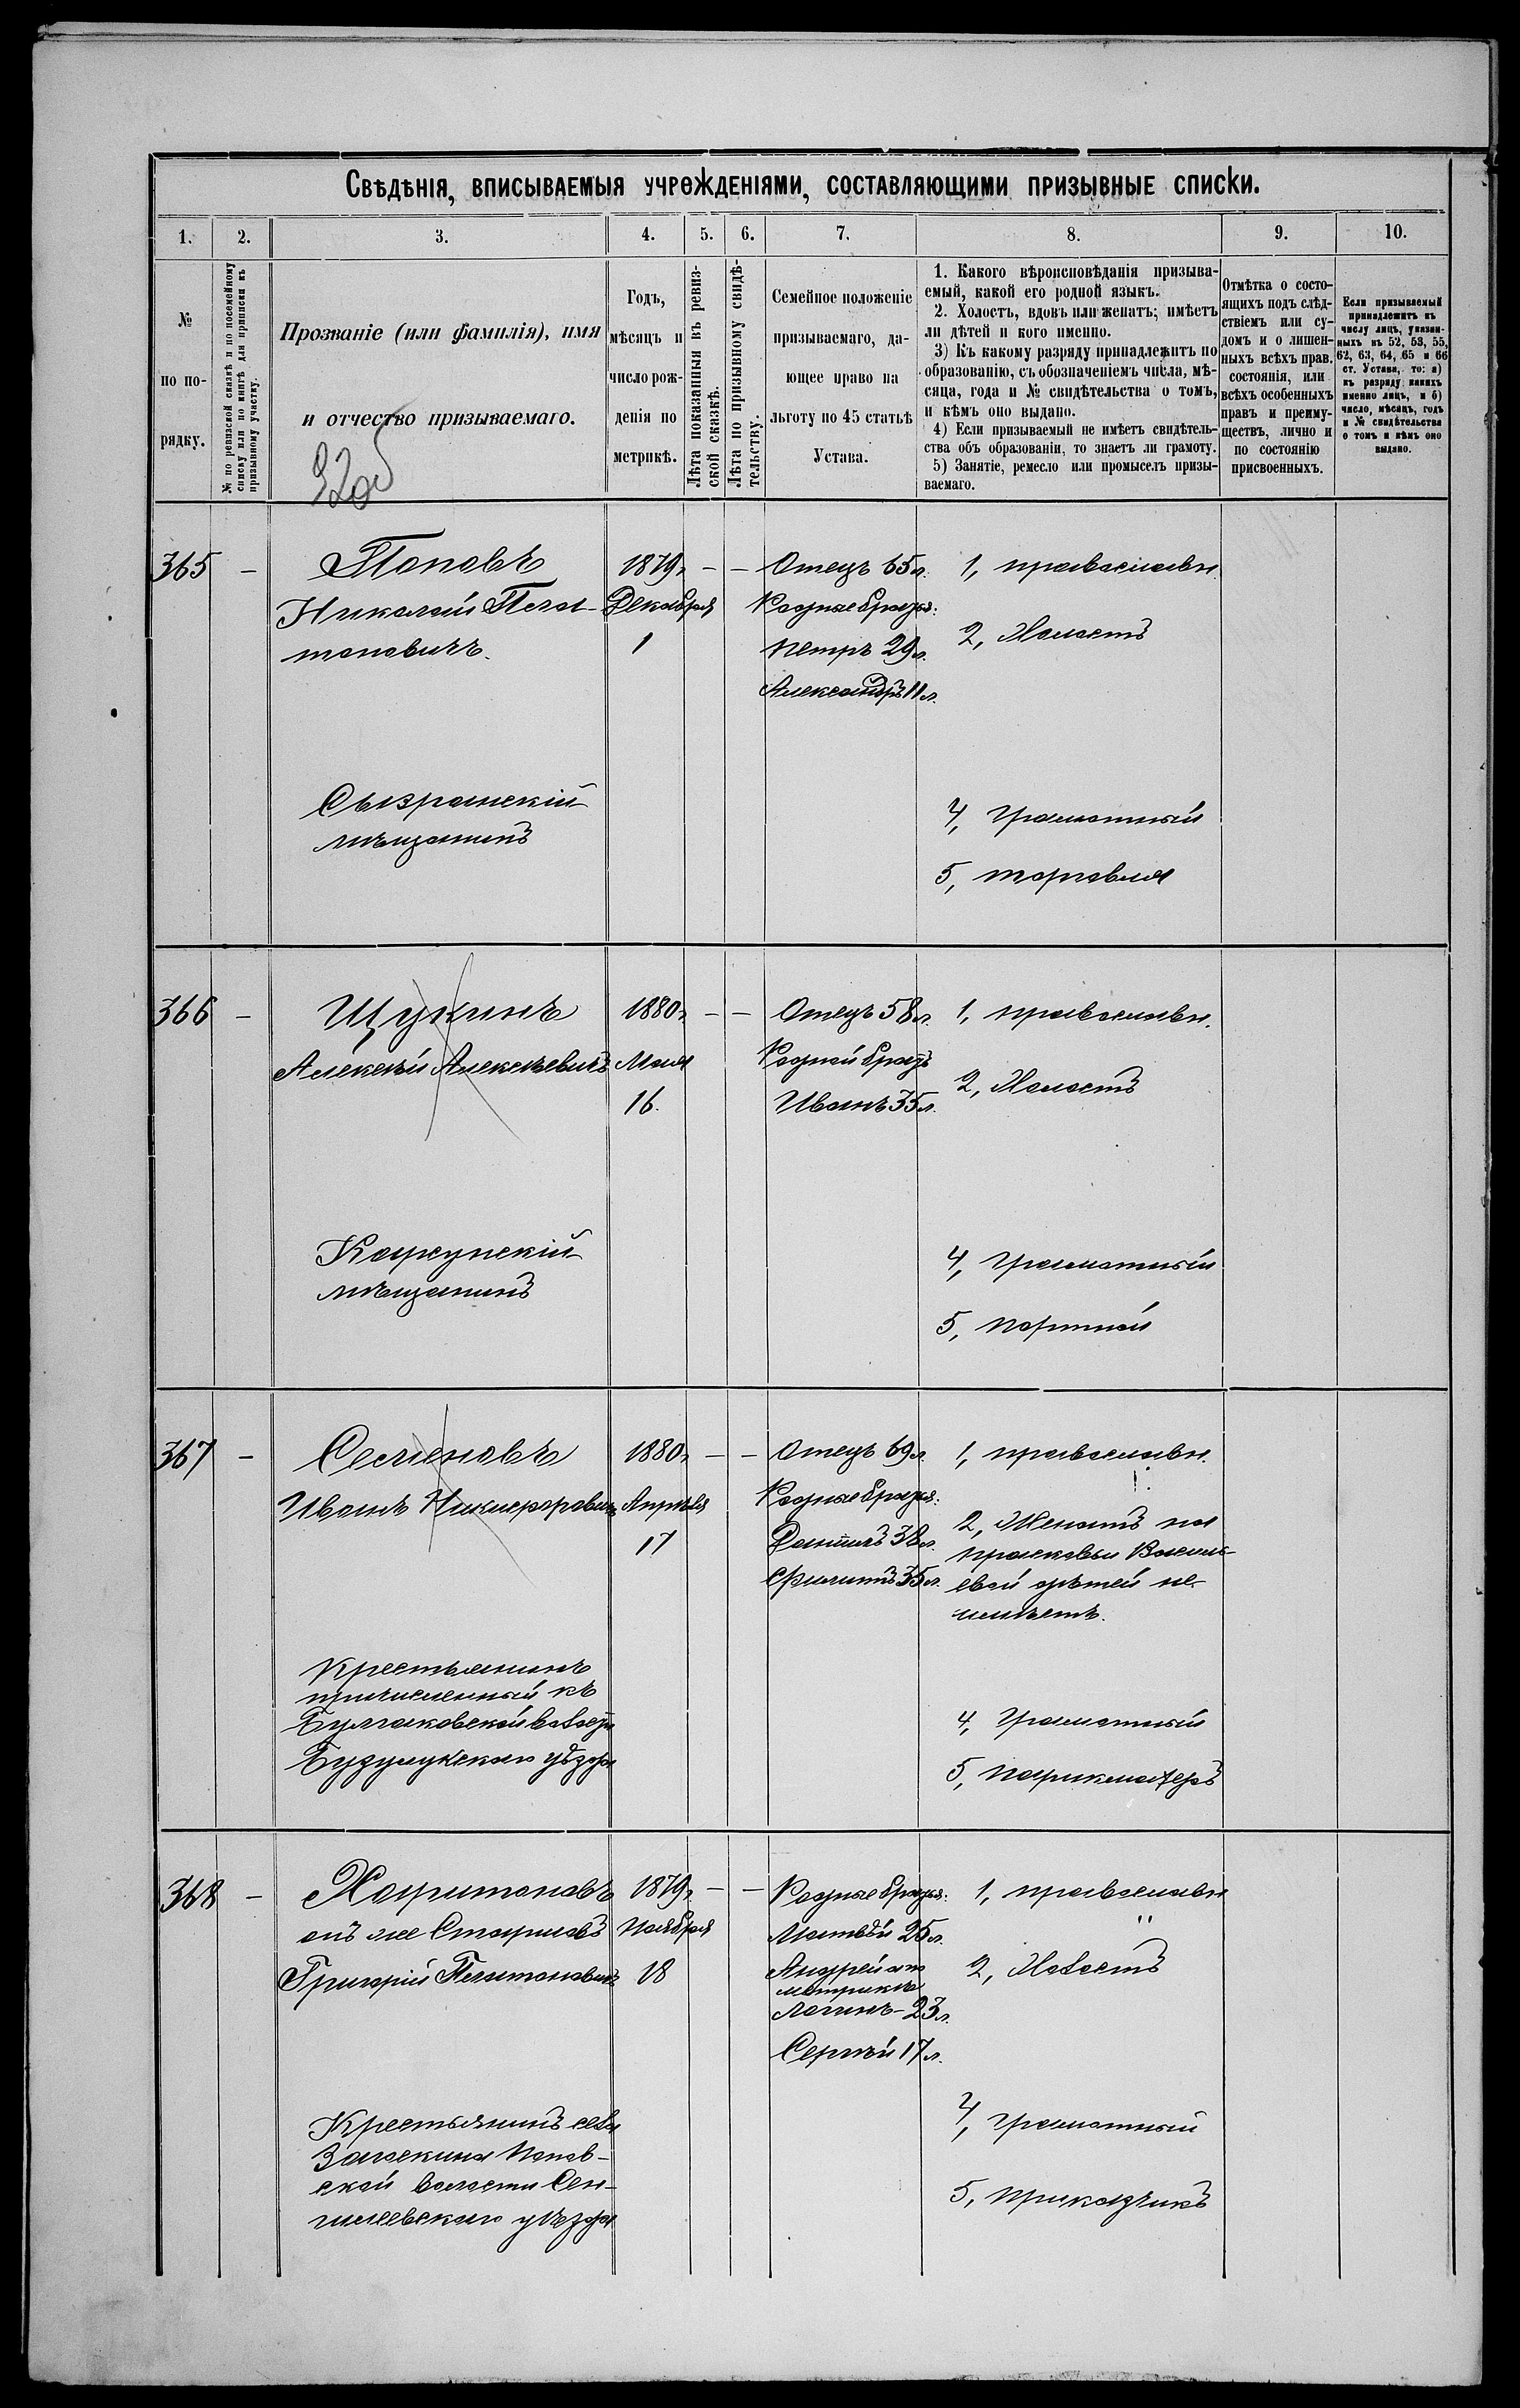 Свѣдѣнія, вписываемыя учрежденіями, составляющими призывные списки.
1. 2. 3. 4. 5. 6. 7. 8. 9. 10.
№
по по-
рядку.
№ по ревизской сказкѣ и по посемейному
списку или по книгѣ для приписки къ
призывному участку.
Прозваніе (или фамилія), имя
и отчество призываемаго.
Годъ,
мѣсяцъ и
число рож-
денія по
метрикѣ.
Лѣта показанныя въ ревиз-
ской сказкѣ.
Лѣта по призывному свидѣ-
тельству.
Семейное положеніе
призываемаго, да-
ющее право на
льготу по 45 статьѣ
Устава.
1. Какого вѣроисповѣданія призыва-
емый, какой его родной языкъ.
2. Холостъ, вдовъ или женатъ; имѣетъ
ли дѣтей и кого именно.
3) Къ какому разряду принадлежитъ по
образованію, съ обозначеніемъ числа, мѣ-
сяца, года и № свидѣтельства о томъ,
и кѣмъ оно выдано.
4) Если призываемый не имѣетъ свидѣтель-
ства объ образованіи, то знаетъ ли грамоту.
5) Занятіе, ремесло или промыселъ призы-
ваемаго.
Отмѣтка о состо-
ящихъ подъ слѣд-
ствіемъ или су-
домъ и о лишен-
ныхъ всѣхъ правъ
состоянія, или
всѣхъ особенныхъ
правъ и преиму-
ществъ, лично и
по состоянію
присвоенныхъ.
Если призываемый
принадлежитъ къ
числу лицъ, указан-
ныхъ въ 52, 53, 55,
62, 63, 64, 65 и 66
ст. Устава, то: а)
къ разряду какихъ
именно лицъ, и б)
число, мѣсяцъ, годъ
и № свидѣтельства
о томъ и кѣмъ оно
выдано.
365 -
Поповъ
Николай Пла-
тоновичъ.
1879г.
Декабря
1
- -
Отецъ 65л.
Родные братья:
Петръ 29л.
Александръ 11л.
1, православн.
2, Холостъ
Сызранскій
мѣщанинъ
4, грамотный
5, торговля
366 -
Щукинъ
Алексѣй Алексѣевичъ
1880г.
Мая
16.
- -
Отецъ 58л.
Родной братъ
Иванъ 35л.
1, православн.
2, Холостъ
Карсунскій
мѣщанинъ
4, грамотный
5, портной
367 -
Семеновъ
Иванъ Никифоровичъ
1880г.
Апрѣля
17
- -
Отецъ 69л.
Родные братья:
Даніилъ 38л.
Филипъ 35л.
1, православн.
2, Женатъ на
Прасковьи Василь-
евой дѣтей не
имѣетъ.
Крестьянинъ
причисленный къ
волости
Бузулукскаго уѣзда
4, грамотный
5, парикмахеръ
368 -
Харитоновъ
онъ же
Григорій Платоновичъ
1879г.
Ноября
18
- -
Родные братья:
Матвѣй 25л.
Андрей по
метрикѣ
Логинъ - 23л.
Сергѣй 17л.
1, православн
2, Холостъ
Крестьянинъ села
Попов-
ской волости Сен-
гилеевскаго уѣзда
4, грамотный
5, приказчикъ